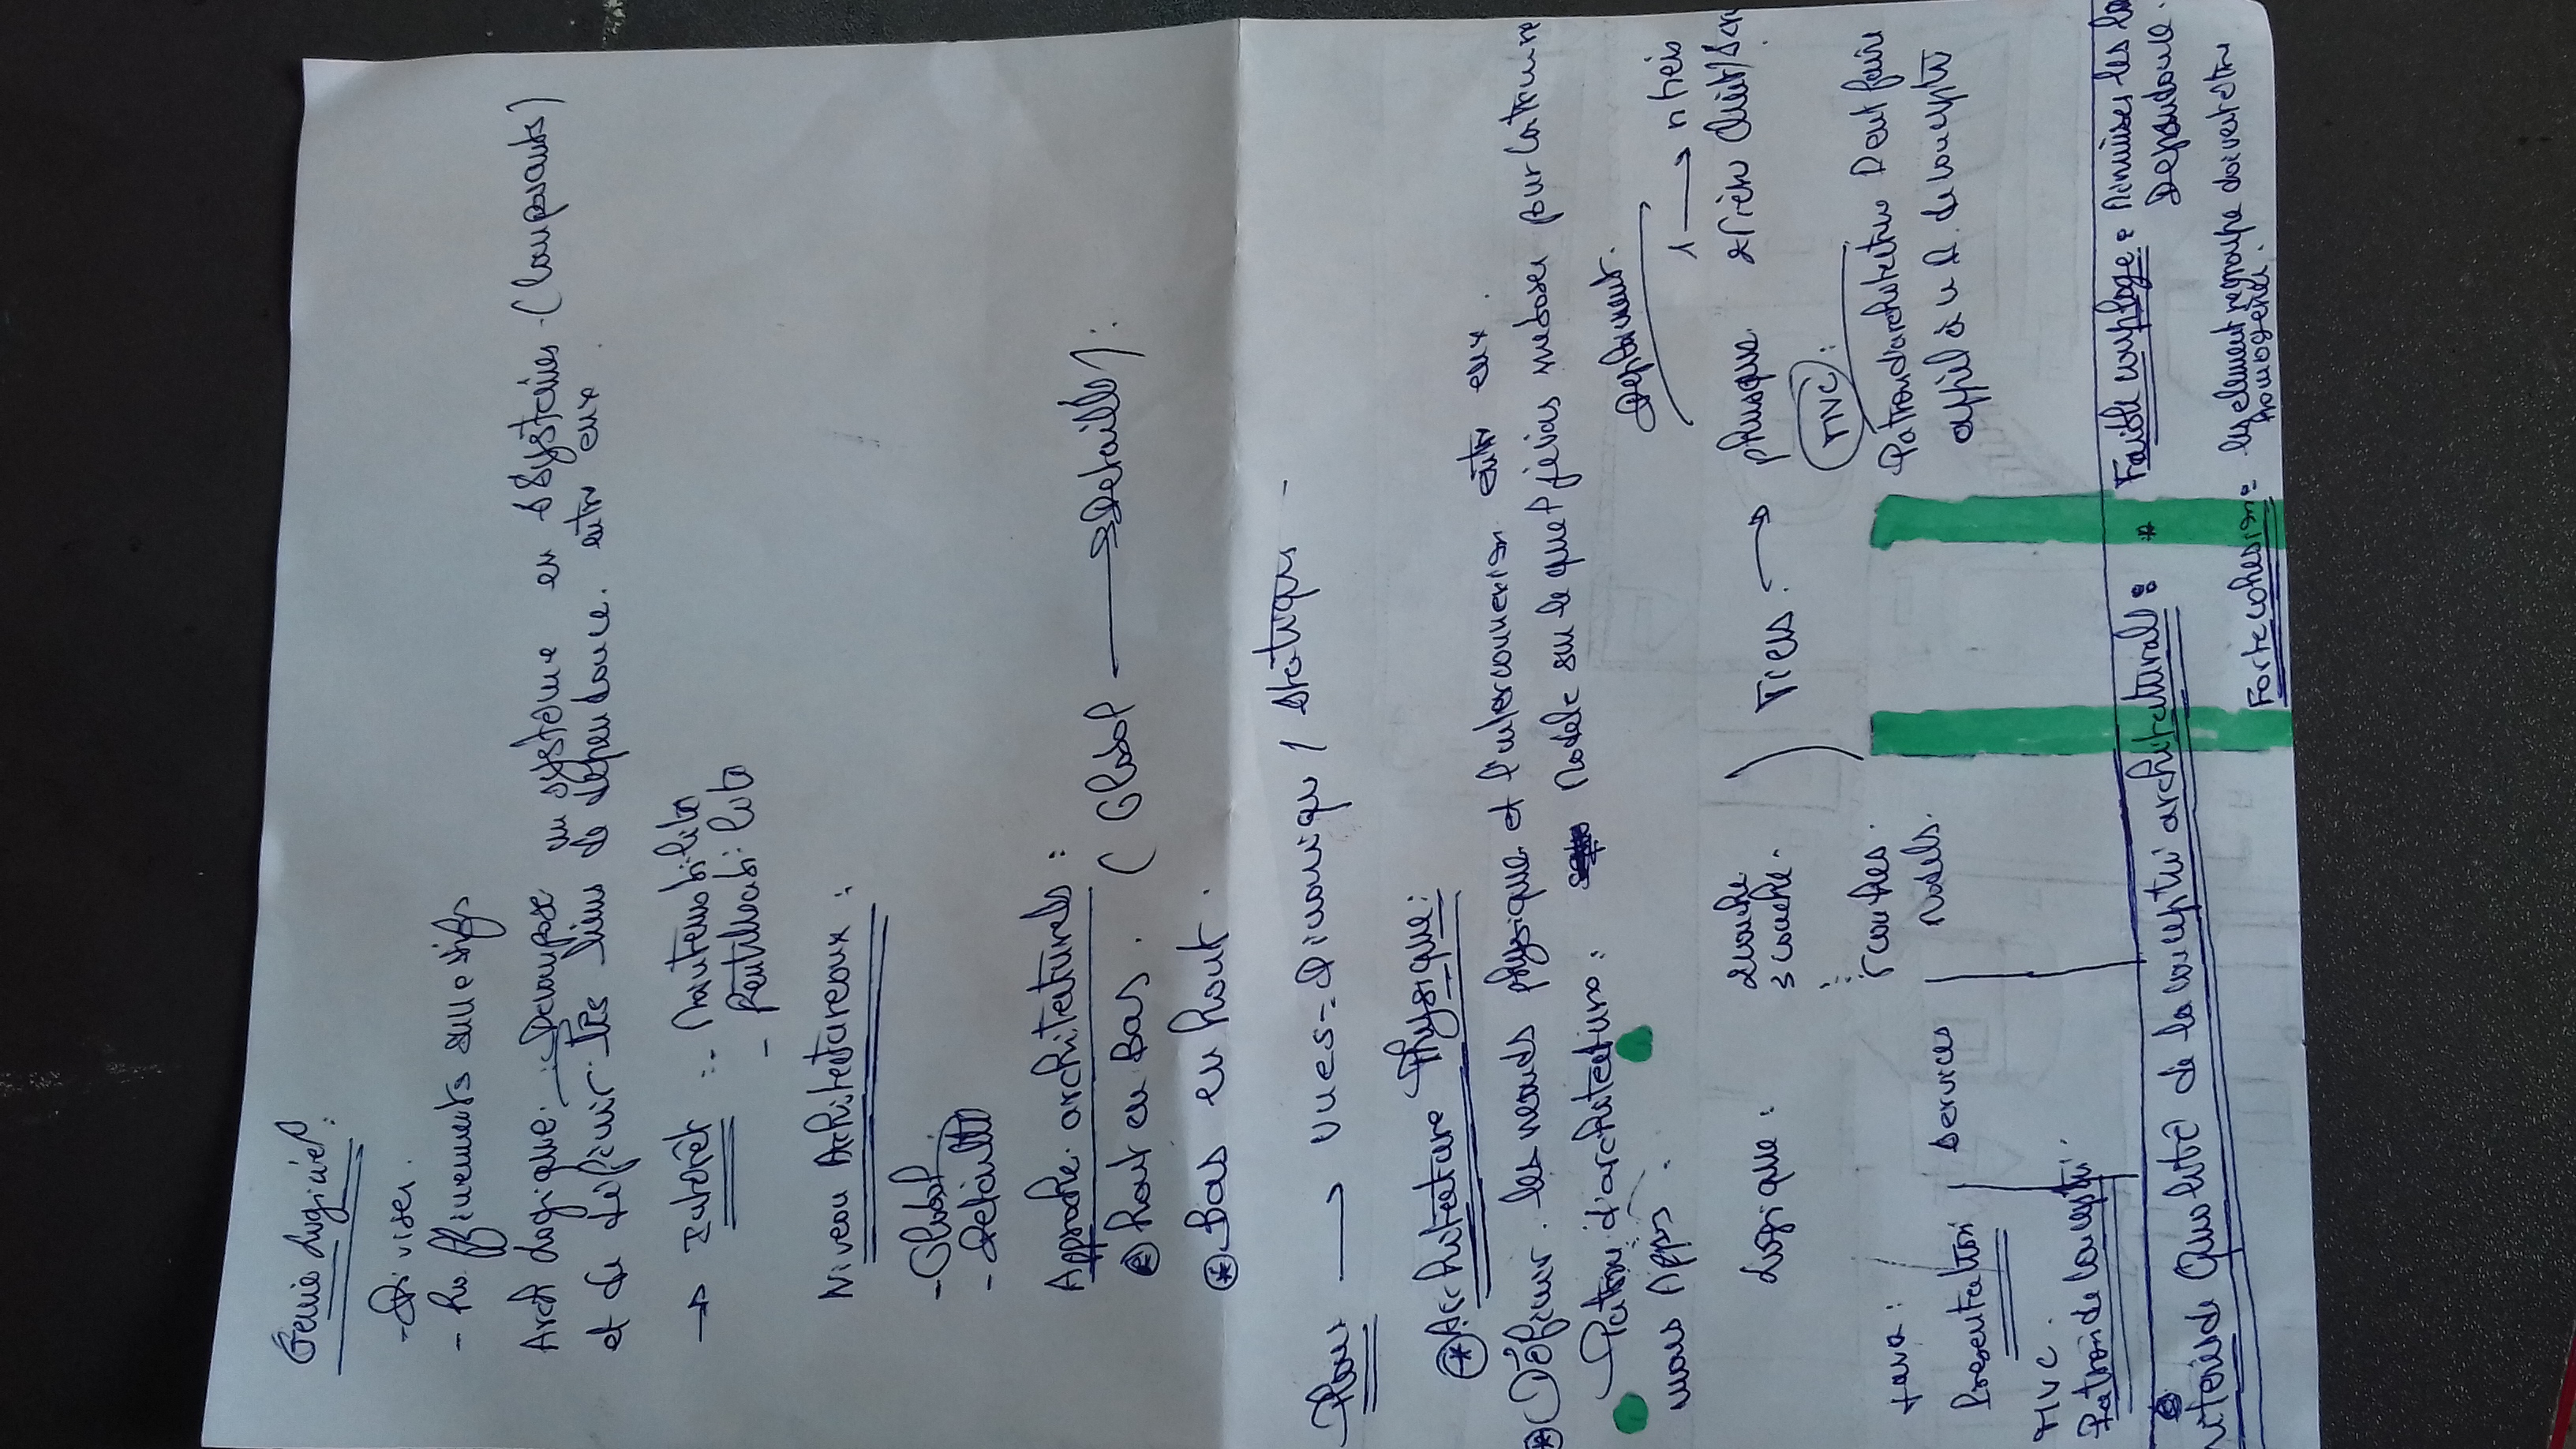 Genie Logiciel :
- Diviser.
- Raffinements successifs
Arch Logique : Decompose un système en s/Systèmes (Composants)
et de définir les liens de dependance entre eux.
→ Intérêt : - Maintenabilité
- Reutilisabilité
Niveau Architectureaux :
- Global.
- Detaillé
Approche architecturels :
Haut en Bas. ( Global → Detaillé) :
Bas en haut.
→ Vues = Dinamique / Statique -
Architecture Physique :
Définir les neouds physique et l'interconnexion entre eux.
Patron d'architecture : Modele sur le quel je vais me baser pour Construire
mais Apps.
Deploiment.
1 → n tiers
Logique :
2 couche
3 couche.
5 couches.
Tiers. → phusque. 2 tiers Client/Ser
MVC :
Patron d'architecture Peut faire
appel à u P. de conceptº
Java :
Presentation
Services
Models.
MVC.
Patron de Conceptº
iteres de Qualité de la conceptº architecturals : * Faible couplage : Minimiser les
Dependance.
Forte cohesion = les element regroupe doivent être
homogenes.